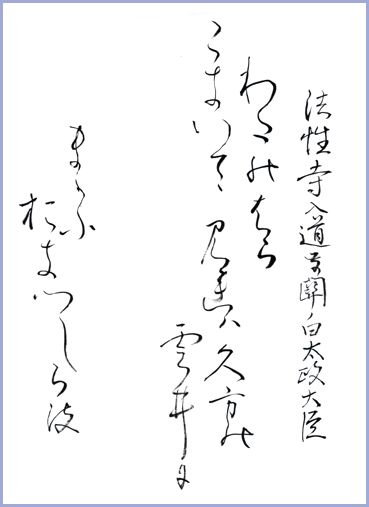 法性寺入道前関白太政大臣
わたの者ら
こきいてゝ 見連ハ久方の
雲井に
まかふ
おきつしら波